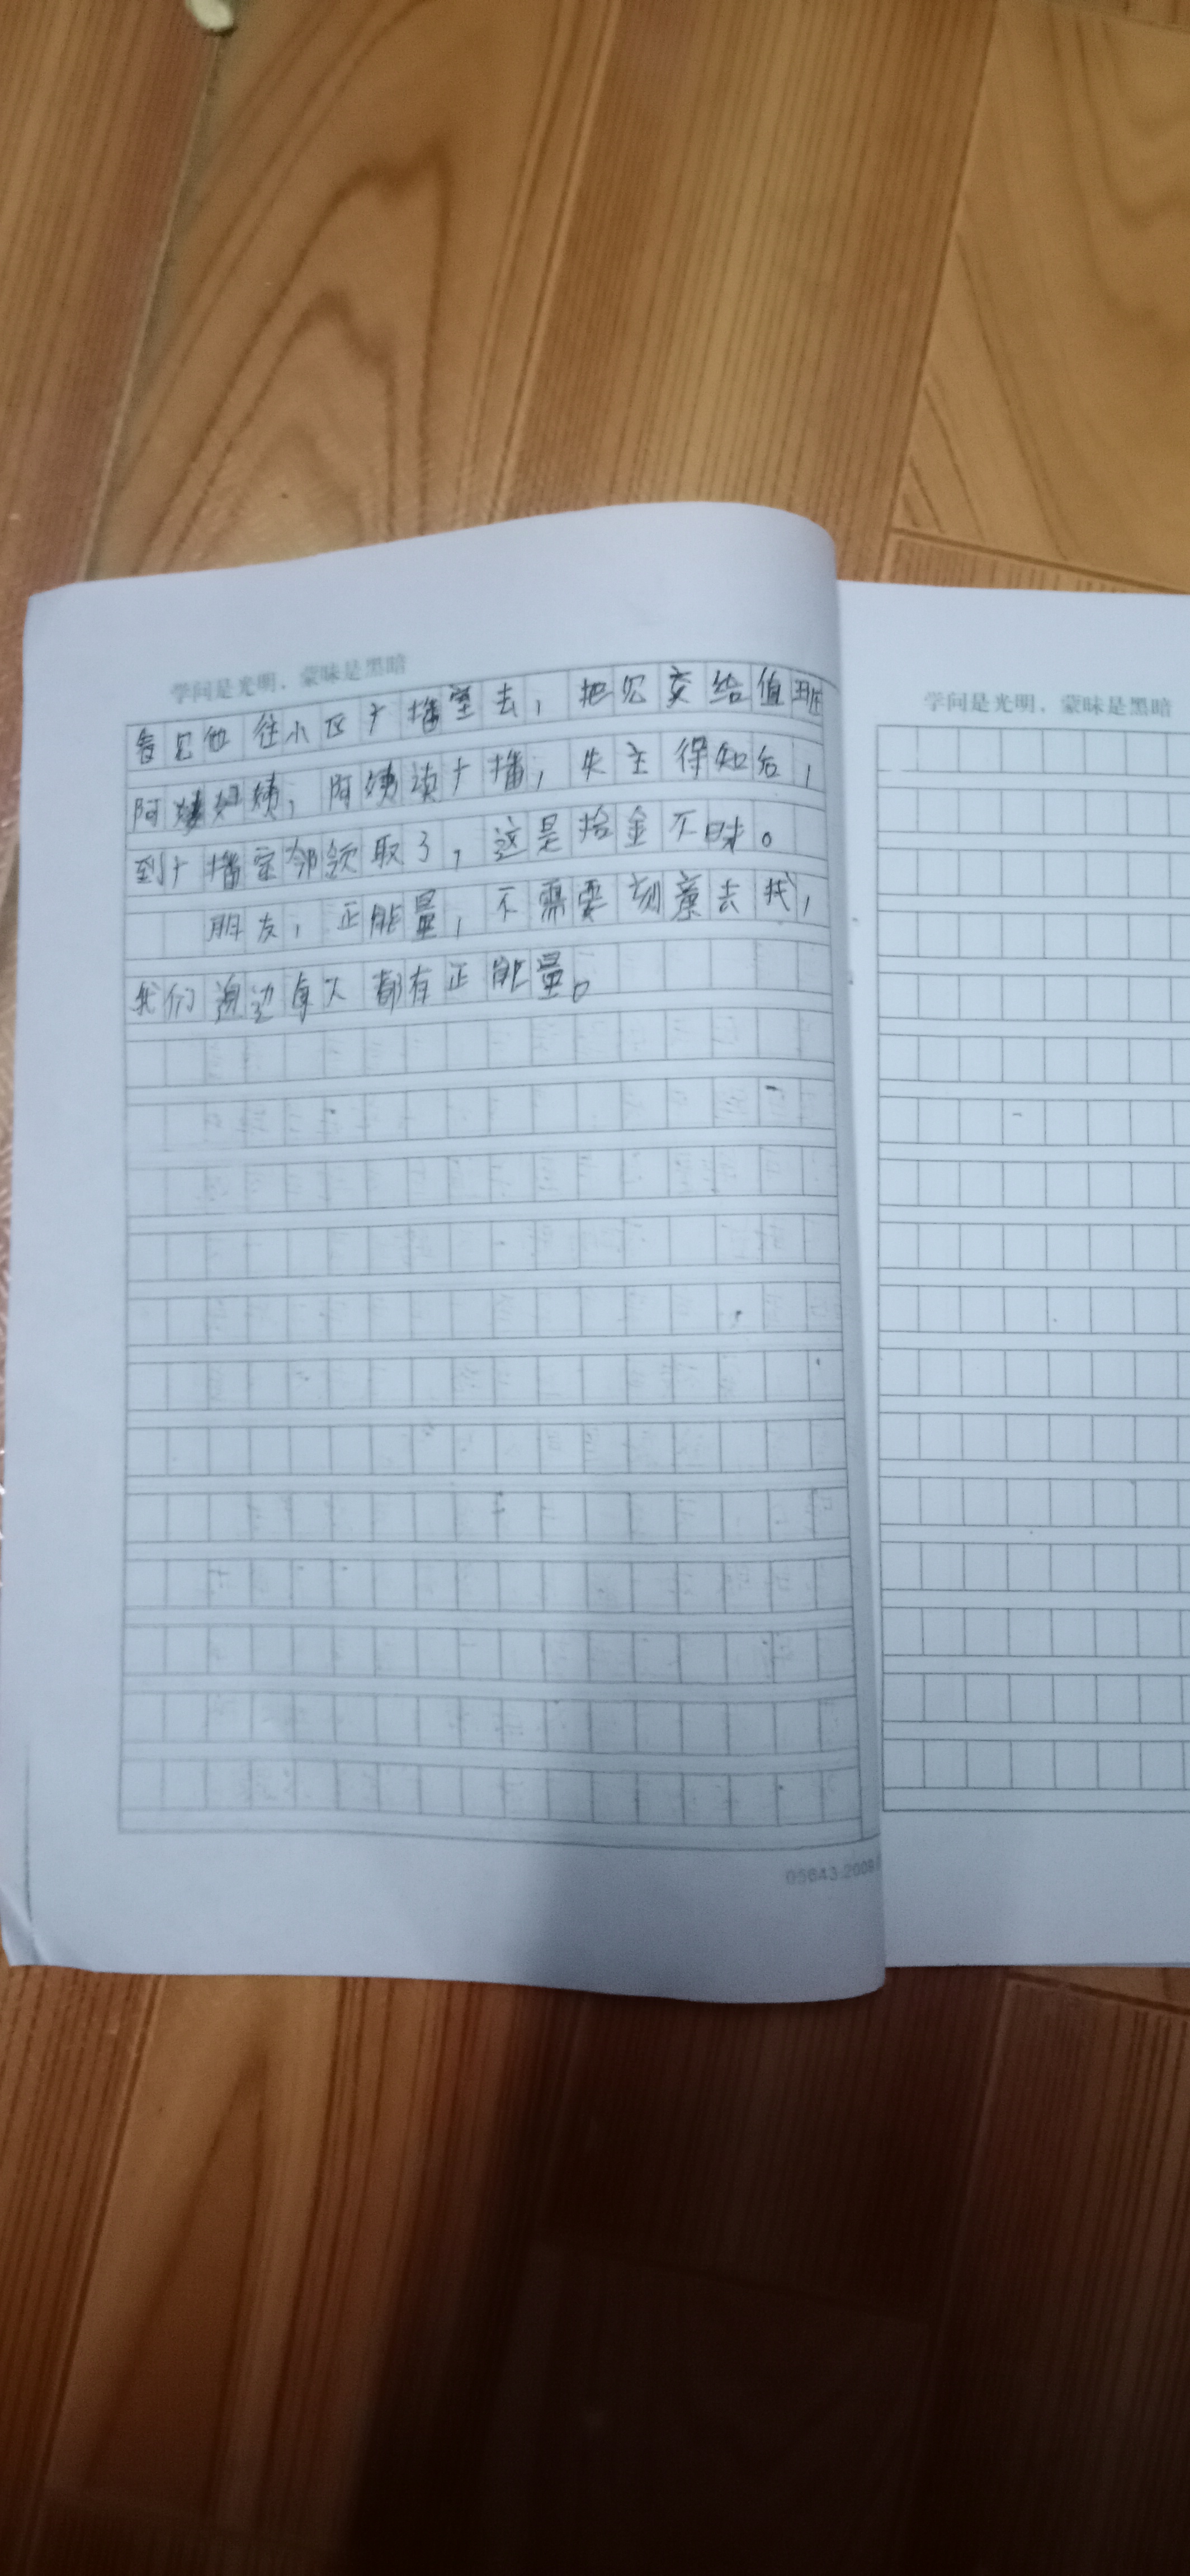 学问是光明，蒙昧是黑暗
看见他往小区广播室去，把它交给值班
阿姨，阿姨读广播，失主得知后，
到广播室领取了，这是拾金不昧。
朋友，正能量，不需要刻意去找，
我们身边每天都有正能量。
05643.2009
学问是光明，蒙昧是黑暗